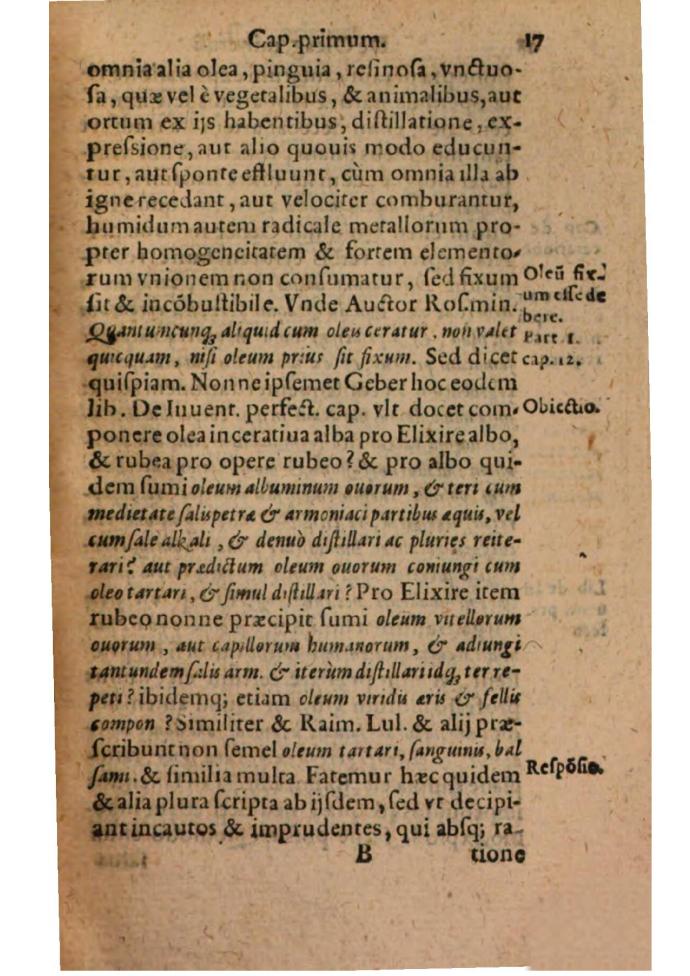 Cap. primum. 17
omnia alia olea, pinguia, reſinoſa, vnctuo-
ſa, quæ vel è vegetalibus, & animalibus, aut
ortum ex ijs habentibus, diſtillatione, ex-
preſsione, aut alio quouis modo educun-
tur, aut ſponte effluunt, cùm omnia illa ab
igne recedant, aut velociter comburantur,
humidum autem radicale metallorum pro-
pter homogeneitatem & fortem elemento-
rum vnionem non conſumatur, ſed fixum
Oleū fix-
ſit & incóbuſtibile. Vnde Auctor Roſ. min.
um eſſe de
bere.
Quantuncunq; aliquid cum oleo ceratur, non valet
Part. 1.
quicquam, niſi oleum prius ſit fixum. Sed dicet
cap. 12.
quiſpiam. Nonne ipſemet Geber hoc eodem
lib. De Inuent. perfect. cap. vlt docet com-
Obiectio.
ponere olea inceratiua alba pro Elixire albo,
& rubea pro opere rubeo? & pro albo qui-
dem ſumi oleum albuminum ouorum, & teri cum
medietate ſalis petræ & armoniaci partibus æquis, vel
cum ſale alkali, & denuò diſtillari ac pluries reite-
rari? aut prædictum oleum ouorum coniungi cum
oleo tartari, & ſimul diſtillari? Pro Elixire item
rubeo nonne præcipit ſumi oleum vitellorum
ouorum, aut capillorum humanorum, & adiungi
tantundem ſalis arm. & iterùm diſtillari idq; ter re-
peti? ibidemq; etiam oleum viridis æris & fellis
compon? Similiter & Raim. Lul. & alij præ-
ſcribunt non ſemel oleum tartari, ſanguinis, bal
ſami. & ſimilia multa. Fatemur hæc quidem
Reſpōſio.
& alia plura ſcripta ab ijſdem, ſed vt decipi-
ant incautos & imprudentes, qui abſq; ra-
B tione